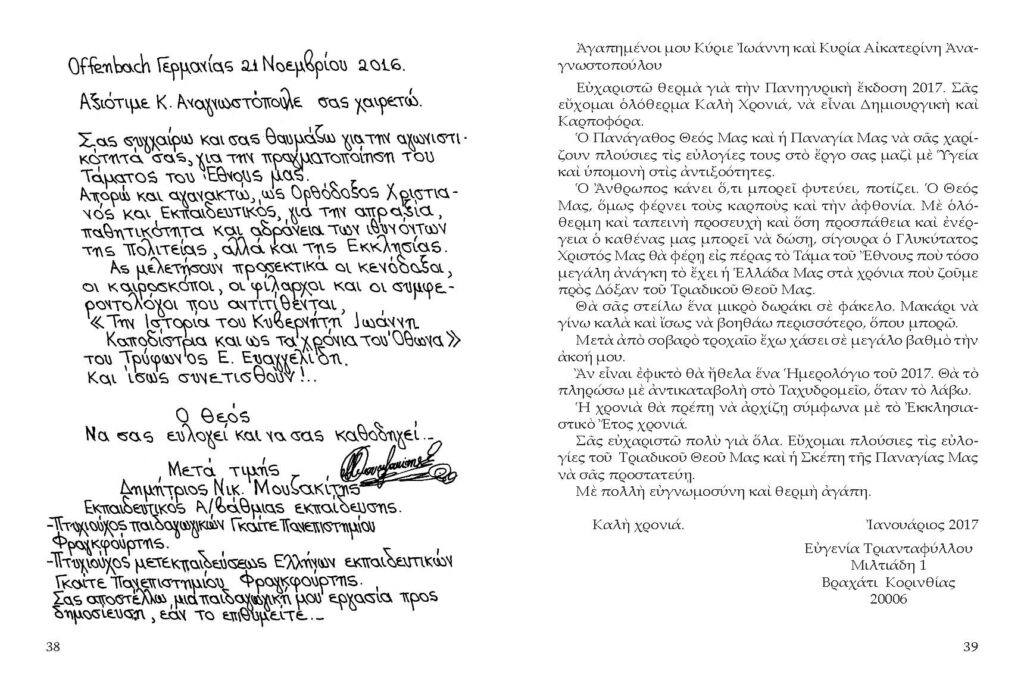 Offenbach Γερμανίας 21 Νοεμβρίου 2016.
Αξιότιμε Κ. Αναγνωστόπουλε σας χαιρετώ.
Σας συγχαίρω και σας θαυμάζω για την αγωνιστι-
κότητά σας, για την πραγματοποίηση του
Τάματος του Έθνους μας.
Απορώ και αγανακτώ, ως Ορθόδοξος Χριστια-
νός και Εκπαιδευτικός, για την απραξία,
παθητικότητα και αδράνεια των ιθυνόντων
της Πολιτείας, αλλά και της Εκκλησίας.
Ας μελετήσουν προσεκτικά οι κενόδοξοι,
οι καιροσκόποι, οι φίλαρχοι και οι συμφε-
ροντολόγοι που αντιτίθενται,
« Την Ιστορία του Κυβερνήτη Ιωάννη
Καποδίστρια και ως τα χρόνια του Όθωνα »
του Τρύφωνος Ε. Ευαγγελίδη.
Και ίσως συνετισθούν!..
Ο Θεός
Να σας ευλογεί και να σας καθοδηγεί..
Μετά τιμής
Δημήτριος Νικ. Μουζακίτης
Εκπαιδευτικός Α/βάθμιας εκπαίδευσης.
-Πτυχιούχος παιδαγωγικών Γκαίτε Πανεπιστημίου
Φραγκφούρτης.
-Πτυχιούχος μετεκπαιδεύσεως Ελλήνων εκπαιδευτικών
Γκαίτε Πανεπιστημίου Φραγκφούρτης.
Σας αποστέλλω, μια παιδαγωγική μου εργασία προς
δημοσίευση, εάν το επιθυμείτε..
38
Ἀγαπημένοι μου Κύριε Ἰωάννη καὶ Κυρία Αἰκατερίνη Ἀνα-
γνωστοπούλου
Εὐχαριστῶ θερμὰ γιὰ τὴν Πανηγυρικὴ ἔκδοση 2017. Σᾶς
εὔχομαι ὁλόθερμα Καλὴ Χρονιά, νὰ εἶναι Δημιουργικὴ καὶ
Καρποφόρα.
Ὁ Πανάγαθος Θεός Μας καὶ ἡ Παναγία Μας νὰ σᾶς χαρί-
ζουν πλούσιες τὶς εὐλογίες τους στὸ ἔργο σας μαζὶ μὲ Ὑγεία
καὶ ὑπομονὴ στὶς ἀντιξοότητες.
Ὁ Ἄνθρωπος κάνει ὅ,τι μπορεῖ φυτεύει, ποτίζει. Ὁ Θεός
Μας, ὅμως φέρνει τοὺς καρποὺς καὶ τὴν ἀφθονία. Μὲ ὁλό-
θερμη καὶ ταπεινὴ προσευχὴ καὶ ὅση προσπάθεια καὶ ἐνέρ-
γεια ὁ καθένας μας μπορεῖ νὰ δώση, σίγουρα ὁ Γλυκύτατος
Χριστός Μας θὰ φέρη εἰς πέρας τὸ Τάμα τοῦ Ἔθνους ποὺ τόσο
μεγάλη ἀνάγκη τὸ ἔχει ἡ Ἑλλάδα Μας στὰ χρόνια ποὺ ζοῦμε
πρὸς Δόξαν τοῦ Τριαδικοῦ Θεοῦ Μας.
Θὰ σᾶς στείλω ἕνα μικρὸ δωράκι σὲ φάκελο. Μακάρι νὰ
γίνω καλὰ καὶ ἴσως νὰ βοηθάω περισσότερο, ὅπου μπορῶ.
Μετὰ ἀπὸ σοβαρὸ τροχαῖο ἔχω χάσει σὲ μεγάλο βαθμὸ τὴν
ἀκοή μου.
Ἂν εἶναι ἐφικτὸ θὰ ἤθελα ἕνα Ἡμερολόγιο τοῦ 2017. Θὰ τὸ
πληρώσω μὲ ἀντικαταβολὴ στὸ Ταχυδρομεῖο, ὅταν τὸ λάβω.
Ἡ χρονιὰ θὰ πρέπη νὰ ἀρχίζη σύμφωνα μὲ τὸ Ἐκκλησια-
στικὸ Ἔτος χρονιά.
Σᾶς εὐχαριστῶ πολὺ γιὰ ὅλα. Εὔχομαι πλούσιες τὶς εὐλο-
γίες τοῦ Τριαδικοῦ Θεοῦ Μας καὶ ἡ Σκέπη τῆς Παναγίας Μας
νὰ σᾶς προστατεύη.
Μὲ πολλὴ εὐγνωμοσύνη καὶ θερμὴ ἀγάπη.
Καλὴ χρονιά. Ἰανουάριος 2017
Εὐγενία Τριανταφύλλου
Μιλτιάδη 1
Βραχάτι Κορινθίας
20006
39